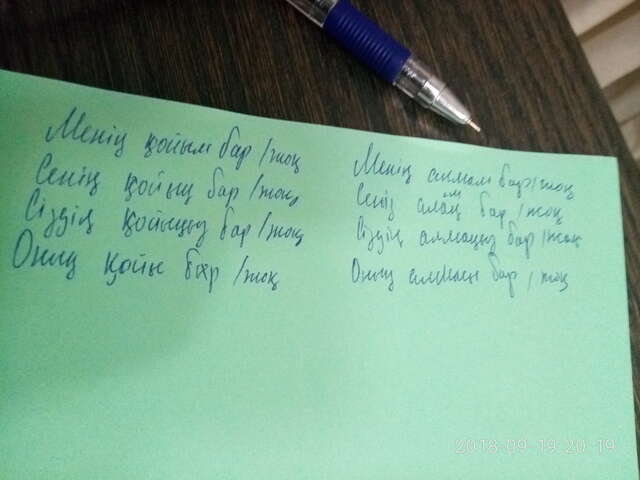 Менің қойым бар / жоқ
Сенің қойың бар / жоқ
Сіздің қойыңыз бар / жоқ
Оның қойы бар / жоқ
Менің алмам бар / жоқ
Сенің алмаң бар / жоқ
Сіздің алмаңыз бар / жоқ
Оның алмасы бар / жоқ
2018-09-19 20:19